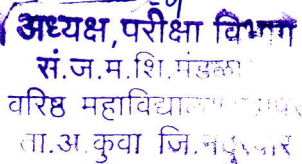 अध्यक्ष,परीक्षा विभाग
सं.ज.म.शि.मंडळ
वरिष्ठ
ता.अ.कुवा जि.नंदुरबार